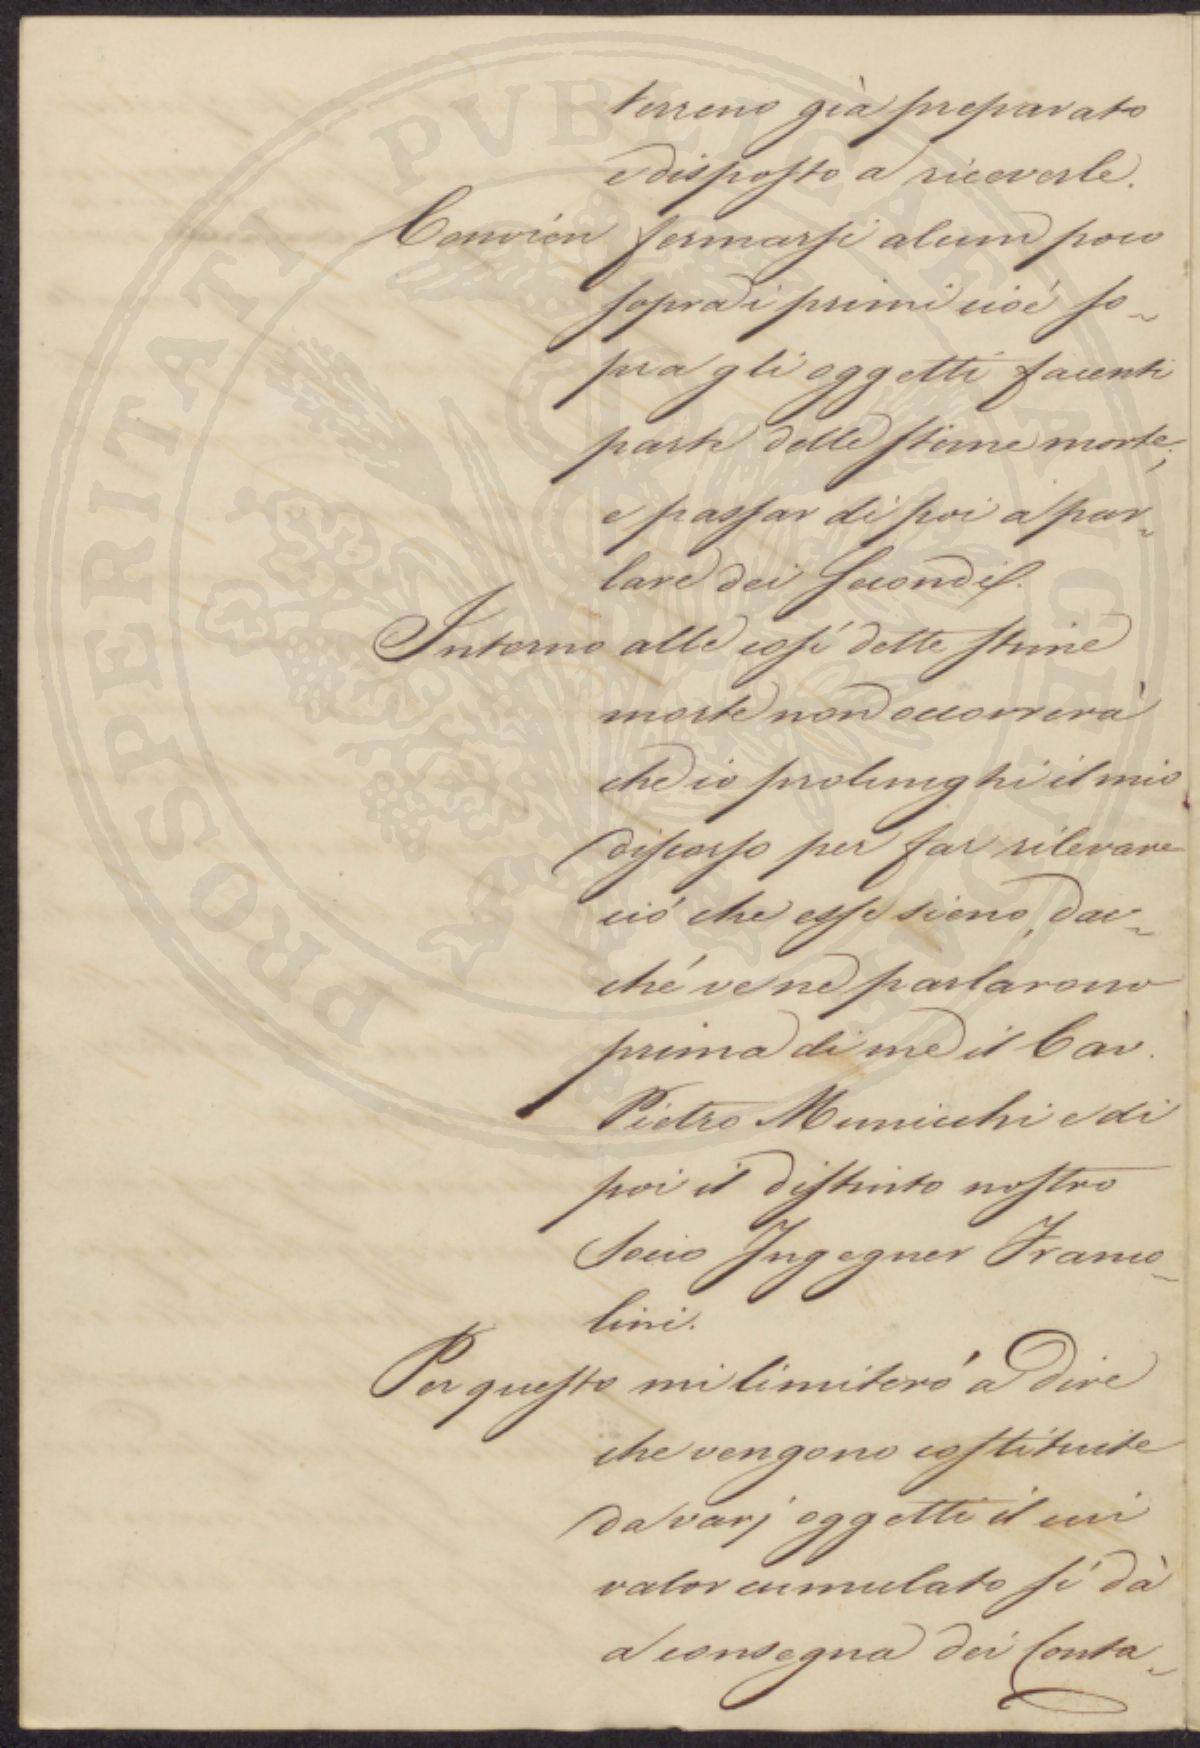 terreno già preparato
e disposto a riceverle.
Convien fermarsi alcun poco
sopra i primi cioé so-
pra gli oggetti facenti
parte delle stime morte;
e passar di poi a par-
lare dei secondi.
Intorno alle così dette stime
morte non occorrerà
che io prolunghi il mio
discorso per far rilevare
ció che esse sieno, dac-
ché ve ne parlarono
prima di me il Cav.
Pietro Municchi e di
poi il distinto nostro
Socio Ingegner Franco-
lini.
Per questo mi limiteró a dire
che vengono costituite
da varj oggetti il cui
valor cumulato si dà
a consegna dei Conta-
PROSPERITATI PVBLICAE AVGENDAE